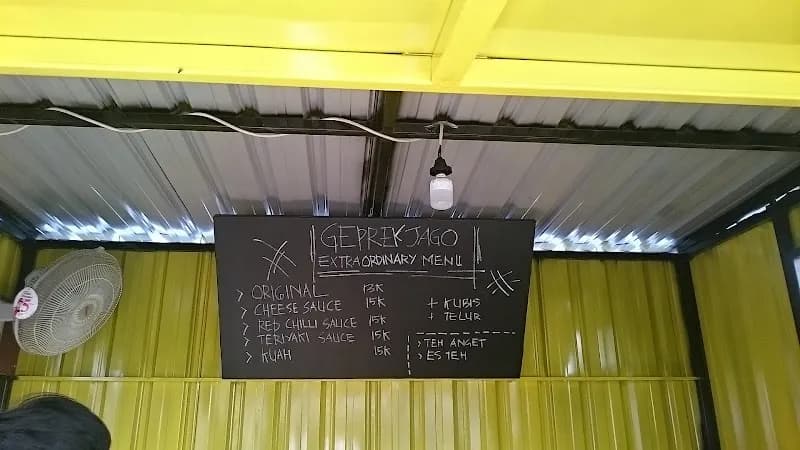 GEPREK JAGO
EXTRAORDINARY MENU
> ORIGINAL 13K
> CHEESE SAUCE 15K
> RED CHILLI SAUCE 15K
> TERIYAKI SAUCE 15K
> KUAH 15K
+ KUBIS
+ TELUR
> TEH ANGET
> ES TEH